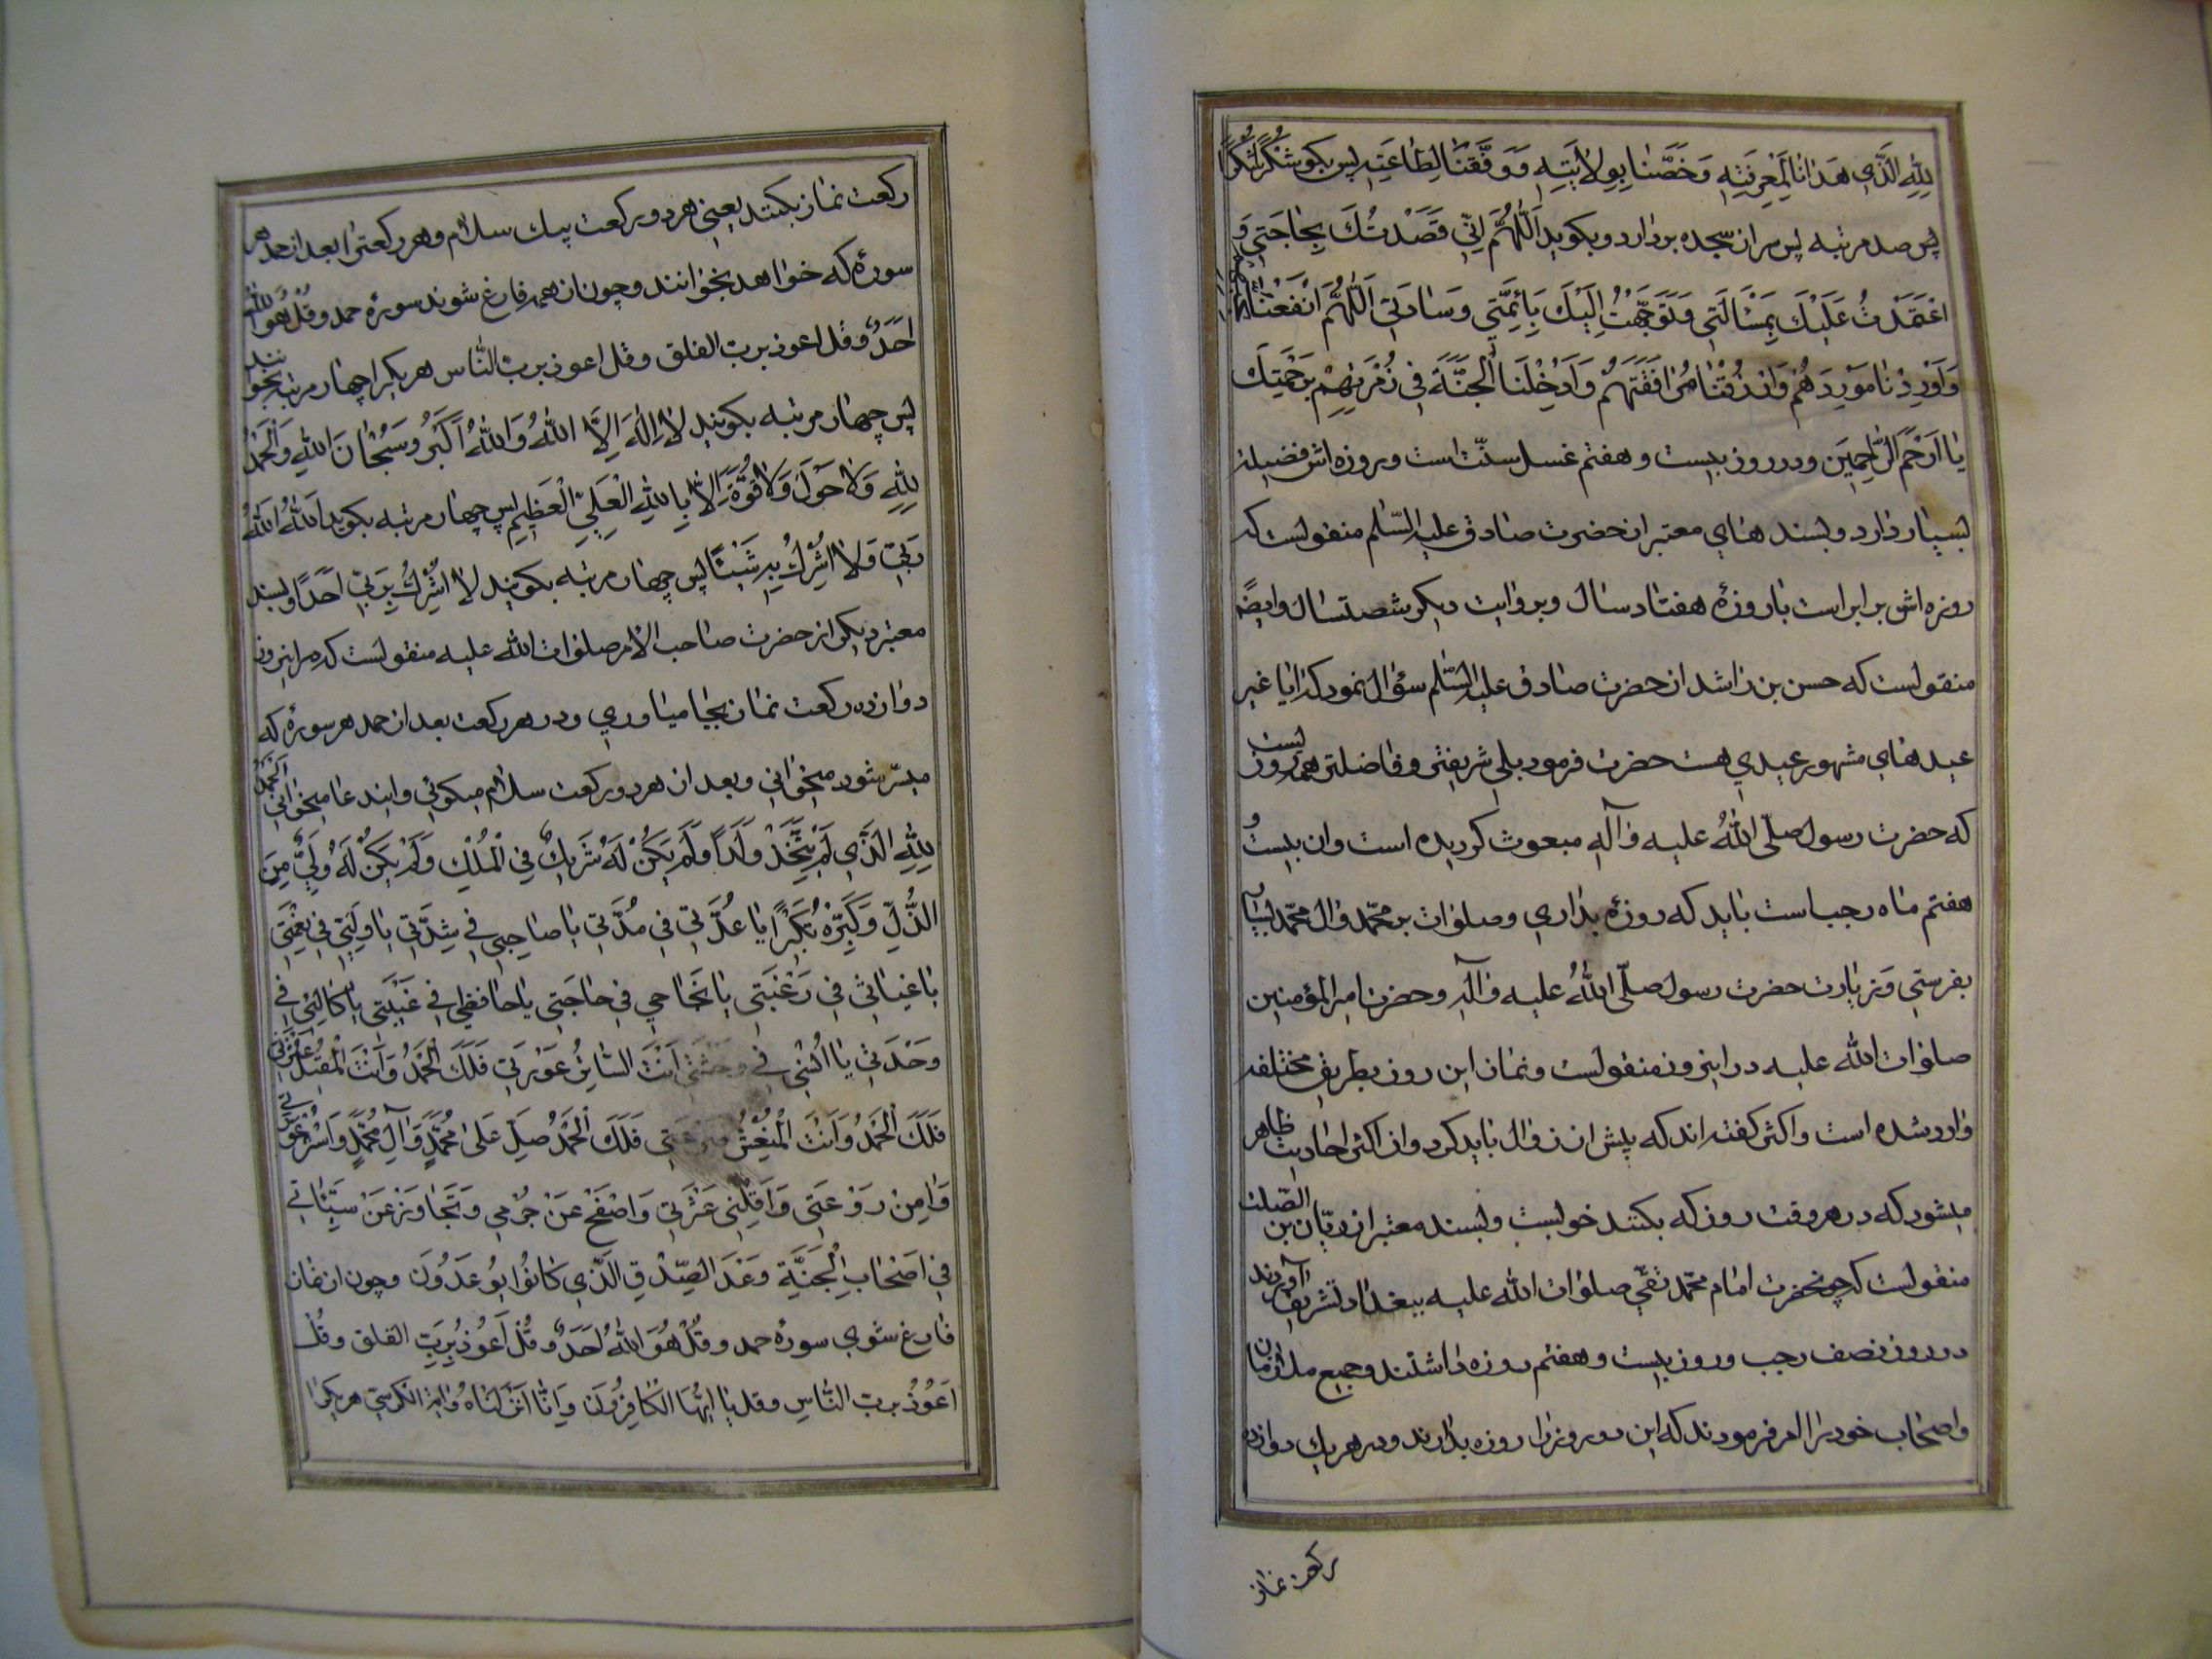 لِلّٰهِ الَّذِي هَدٰانٰا لِمَعْرِفَتِهِ وَخَصَّنٰا بِوِلاٰيَتِهِ وَوَفَّقَنٰا لِطٰاعَتِهِ پس بكو شُكْرًا شُكْرًا
پس صد مرتبه پس سر از سجده بردارد و بكويد اَللّٰهُمَّ اِنّي قَصَدْتُكَ بِحٰاجَتي وَ
اعْتَمَدْتُ عَلَيْكَ بِمَسْاَلَتي وَتَوَجَّهْتُ اِلَيْكَ بِاَئِمَّتي وَسٰادَتي اَللّٰهُمَّ انْفَعْنٰا
وَاَوْرِدْنٰا مَوْرِدَهُمْ وَارْزُقْنٰا مُرٰافَقَتَهُمْ وَاَدْخِلْنَا الْجَنَّةَ في زُمْرَتِهِمْ بِرَحْمَتِكَ
يٰا اَرْحَمَ الرّٰاحِمينَ ودر روز بيست و هفتم غسل سنّت است و روزه اش فضيلت
بسيار دارد و بسند هاي معتبر از حضرت صادق عليه السّلام منقولست كه
روزه اش برابر است با روزهٔ هفتاد سال و بروايت ديكر شصت سال وايضًا
منقولست كه حسن بن راشد از حضرت صادق عليه السّلام سؤال نمود كه ايا غير
عيد هاي مشهور عيدي هست حضرت فرمود بلي شريفتر و فاضلتر همه روز يست
كه حضرت رسول صلّى اللهُ عليه وآلهِ مبعوث كرديده است وان بيست و
هفتم ماه رجب است بايد كه روزه بداري و صلوات بر محمّد وال محمّد بسيار
بفرستي و زيارت حضرت رسول صلّى اللهُ عليه وآلهِ و حضرت امير المؤمنين
صلوات الله عليه در اينروز منقولست و نماز اين روز بطريق مختلفه
وارد شده است و اكثر كفته اند كه پيش از زوال بايد كرد و از اكثر احاديث ظاهر
ميشود كه در هر وقت روز كه بكنند خوبست و بسند معتبر از ريّان بن الصّلت
منقولست كه چون حضرت امام محمّد تقي صلوات الله عليه ببغداد تشريف آوردند
در روز نصف رجب و روز بيست و هفتم روزه داشتند و جميع ملازمان
و اصحاب خود را امر فرمودند كه اين دو روز را روزه بدارند و در هر يك دوازده
ركعت نماز
ركعت نماز بكنند يعني هر دو ركعت بيك سلام و هر ركعتي را بعد از حمد هر
سورهٔ كه خواهد بخوانند و چون از همه فارغ شوند سورهٔ حمد و قُلْ هُوَ اللهُ
اَحَدٌ و قل اعوذ برب الفلق و قل اعوذ بربّ النّاس هر يكرا چهار مرتبه بخوانند
پس چهار مرتبه بكويند لاٰ اِلٰهَ اِلَّا اللهُ وَاللهُ اَكْبَرُ وَسُبْحٰانَ اللهِ وَالْحَمْدُ
لِلّٰهِ وَلاٰ حَوْلَ وَلاٰ قُوَّةَ اِلّاٰ بِاللهِ الْعَلِيِّ الْعَظيمِ پس چهار مرتبه بكويد اَللهُ اللهُ
رَبّي وَلاٰ اُشْرِكُ بِهِ شَيْئًا پس چهار مرتبه بكويند لاٰ اُشْرِكُ بِرَبّي اَحَدًا و بسند
معتبر ديكر از حضرت صاحب الامر صلوات الله عليه منقولست كه در اينروز
دوازده ركعت نماز بجا مياوري و در هر ركعت بعد از حمد هر سورهٔ كه
ميسّر شود ميخواني و بعد از هر دو ركعت سلام ميكوئي و ايندعا ميخواني اَلْحَمْدُ
لِلّٰهِ الَّذي لَمْ يَتَّخِذْ وَلَدًا وَلَمْ يَكُنْ لَهُ شَريكٌ فِي الْمُلْكِ وَلَمْ يَكُنْ لَهُ وَلِيٌّ مِنَ
الذُّلِّ وَكَبِّرْهُ تَكْبيرًا يٰا عُدَّتي في مُدَّتي يٰا صٰاحِبي في شِدَّتي يٰا وَلِيّي في نِعْمَتي
يٰا غِيٰاثي في رَغْبَتي يٰا نَجٰاحي في حٰاجَتي يٰا حٰافِظي في غَيْبَتي يٰا كٰالِئي في
وَحْدَتي يٰا اُنْسي في وَحْشَتي اَنْتَ السّٰاتِرُ عَوْرَتي فَلَكَ الْحَمْدُ وَاَنْتَ الْمُقيلُ عَثْرَتي
فَلَكَ الْحَمْدُ وَاَنْتَ الْمُنْعِشُ صَرْعَتي فَلَكَ الْحَمْدُ صَلِّ عَلٰى مُحَمَّدٍ وَآلِ مُحَمَّدٍ وَاسْتُرْ عَوْرَتي
وَاٰمِنْ رَوْعَتي وَاَقِلْني عَثْرَتي وَاصْفَحْ عَنْ جُرْمي وَتَجٰاوَزْ عَنْ سَيِّئٰاتي
في اَصْحٰابِ الْجَنَّةِ وَعْدَ الصِّدْقِ الَّذي كٰانُوا يُوعَدُونَ و چون از نماز
فارغ شوي سورهٔ حمد و قُلْ هُوَ اللهُ اَحَدٌ و قُلْ اَعُوذُ بِرَبِّ الفلق و قُلْ
اَعُوذُ بربّ النّاسِ و قل يٰا ايُّهَا الْكٰافِرُونَ وَ اِنّٰا اَنْزَلْنٰاهُ و اية الكرسي هر يكرا